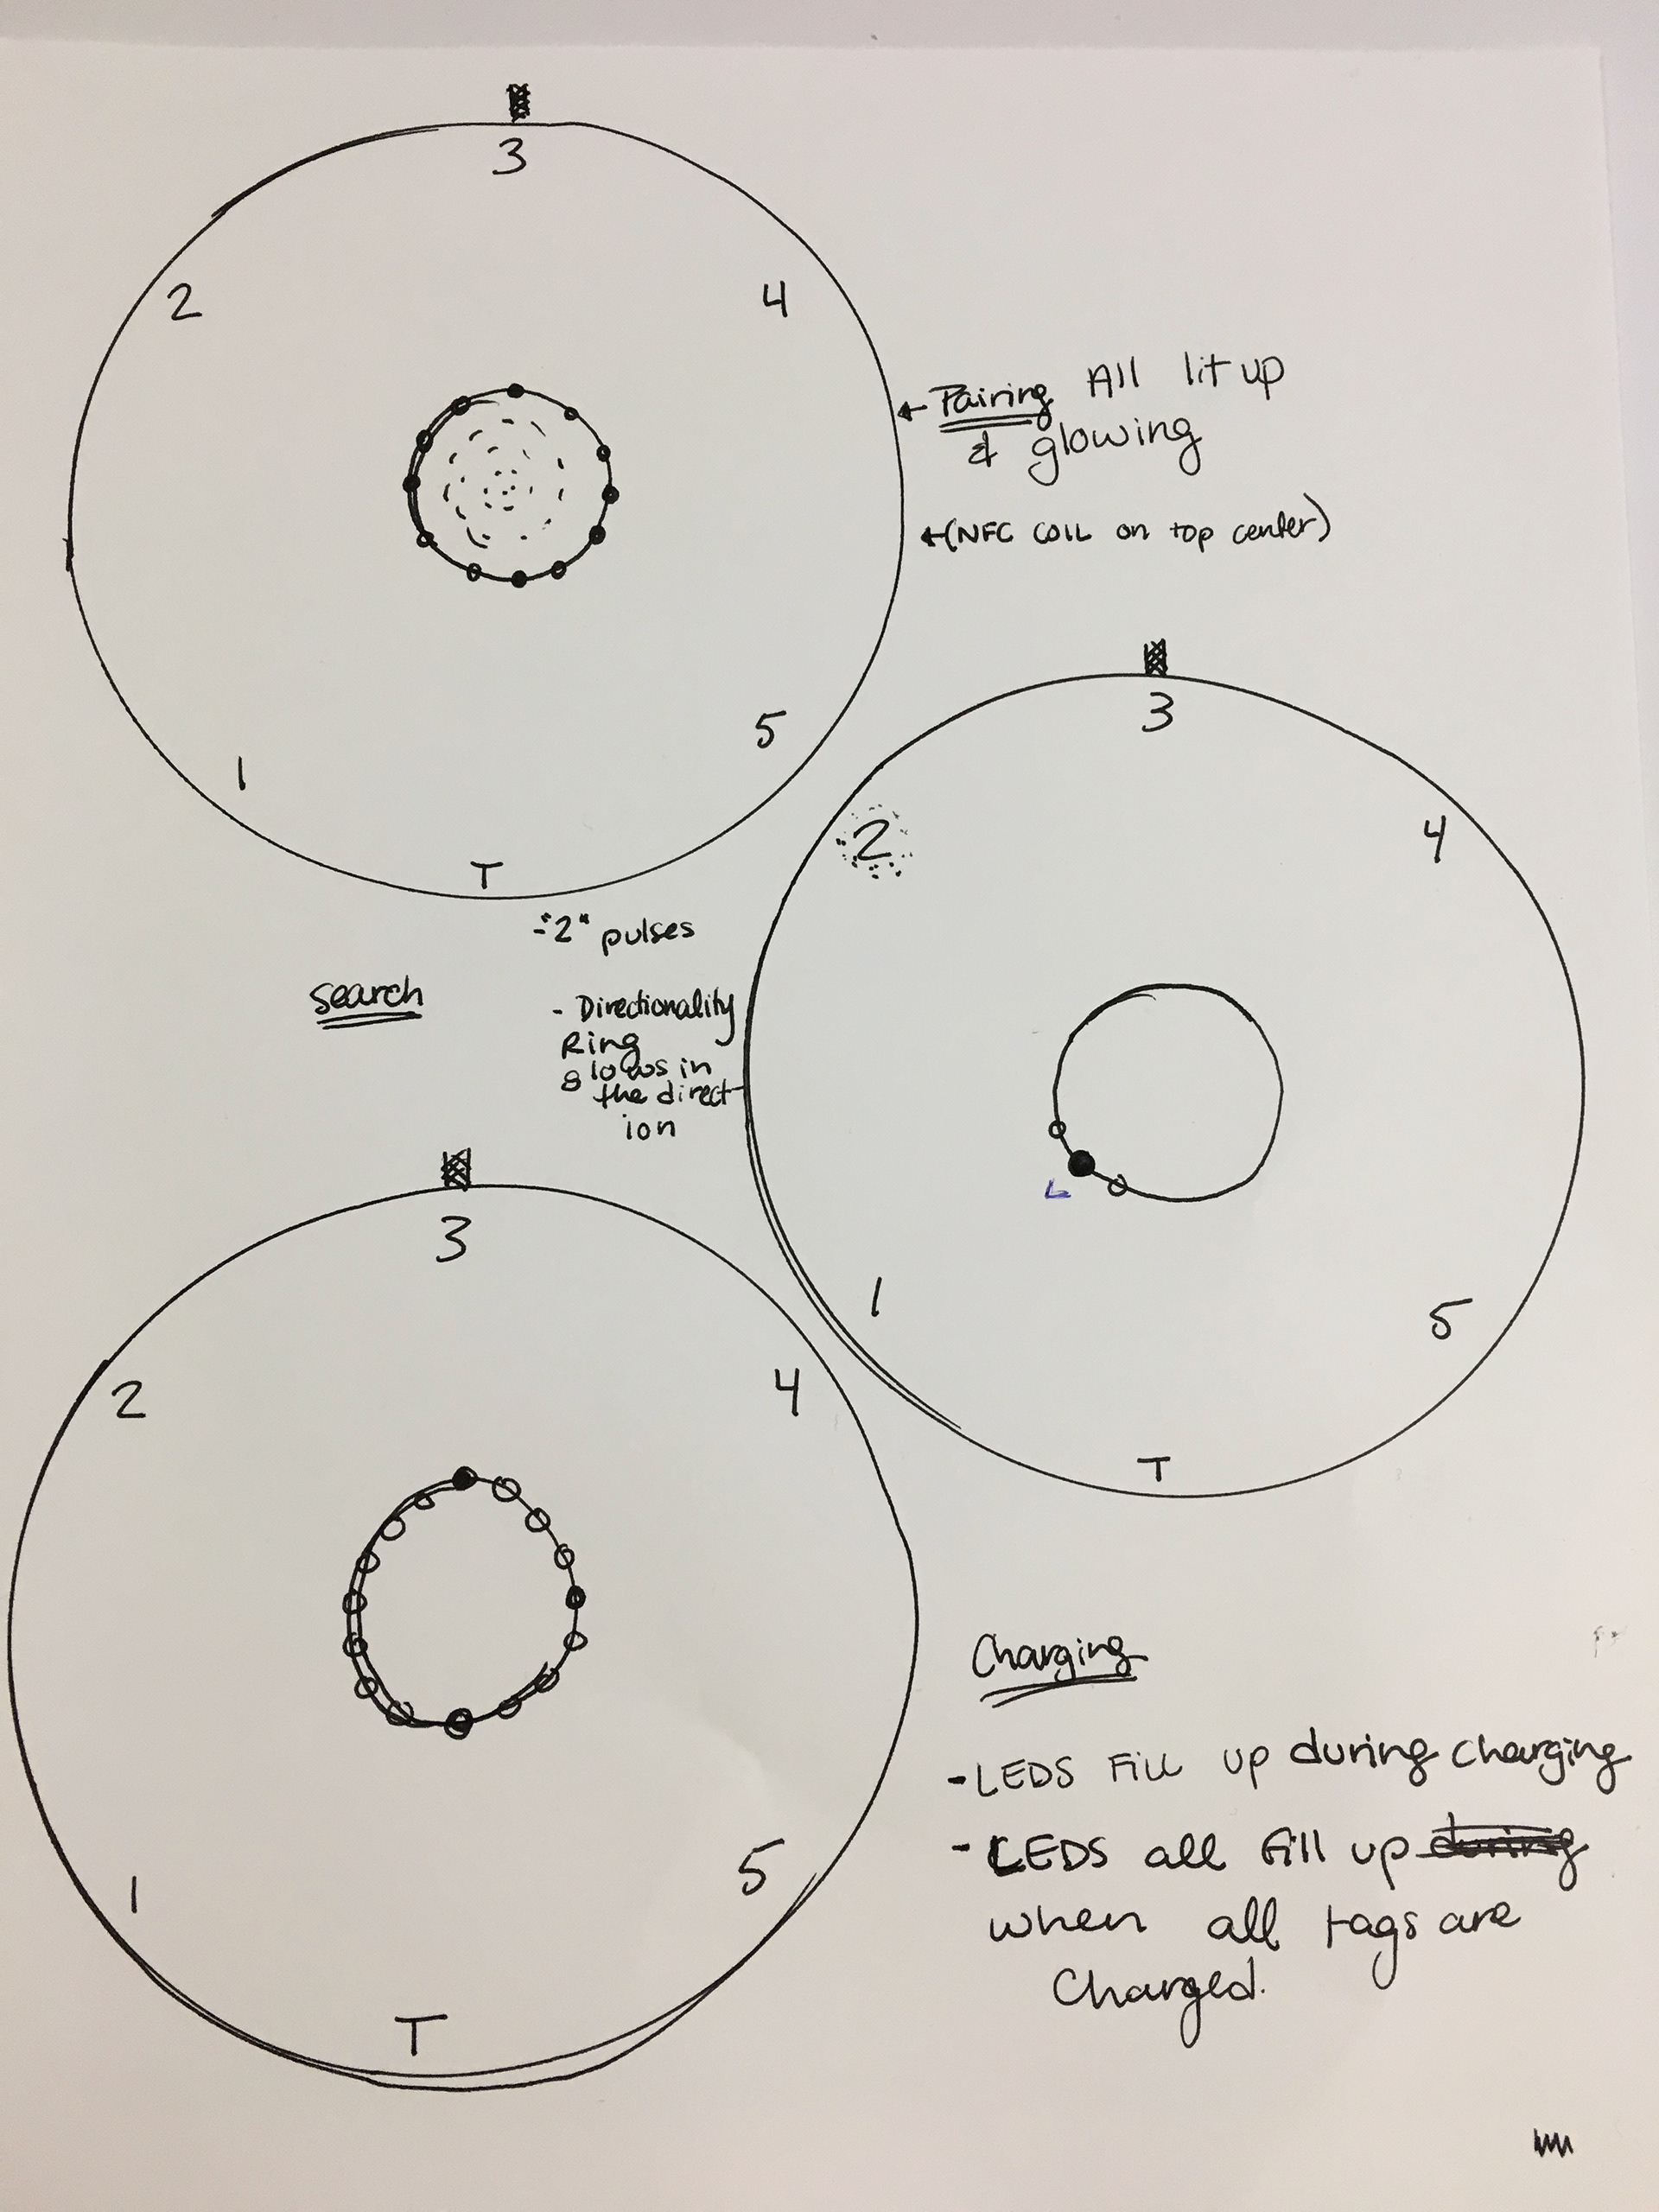 3
2
4
← Pairing All lit up
& glowing
←(NFC COIL on top center)
5
1
T
3
2
4
-"2" pulses
search
- Directionality
Ring
glows in
the direct
ion
L
1
5
T
3
2
4
Charging
-LEDS Fill up during charging
-LEDS all fill up during
when all tags are
Charged.
1
5
T